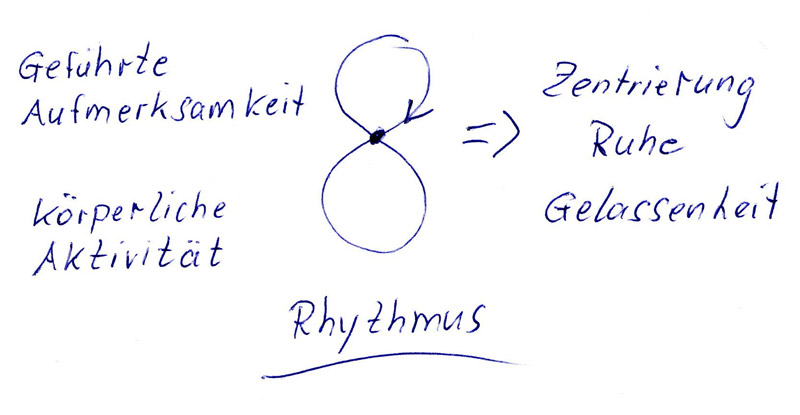 Geführte
Aufmerksamkeit
körperliche
Aktivität
=>
Zentrierung
Ruhe
Gelassenheit
Rhythmus